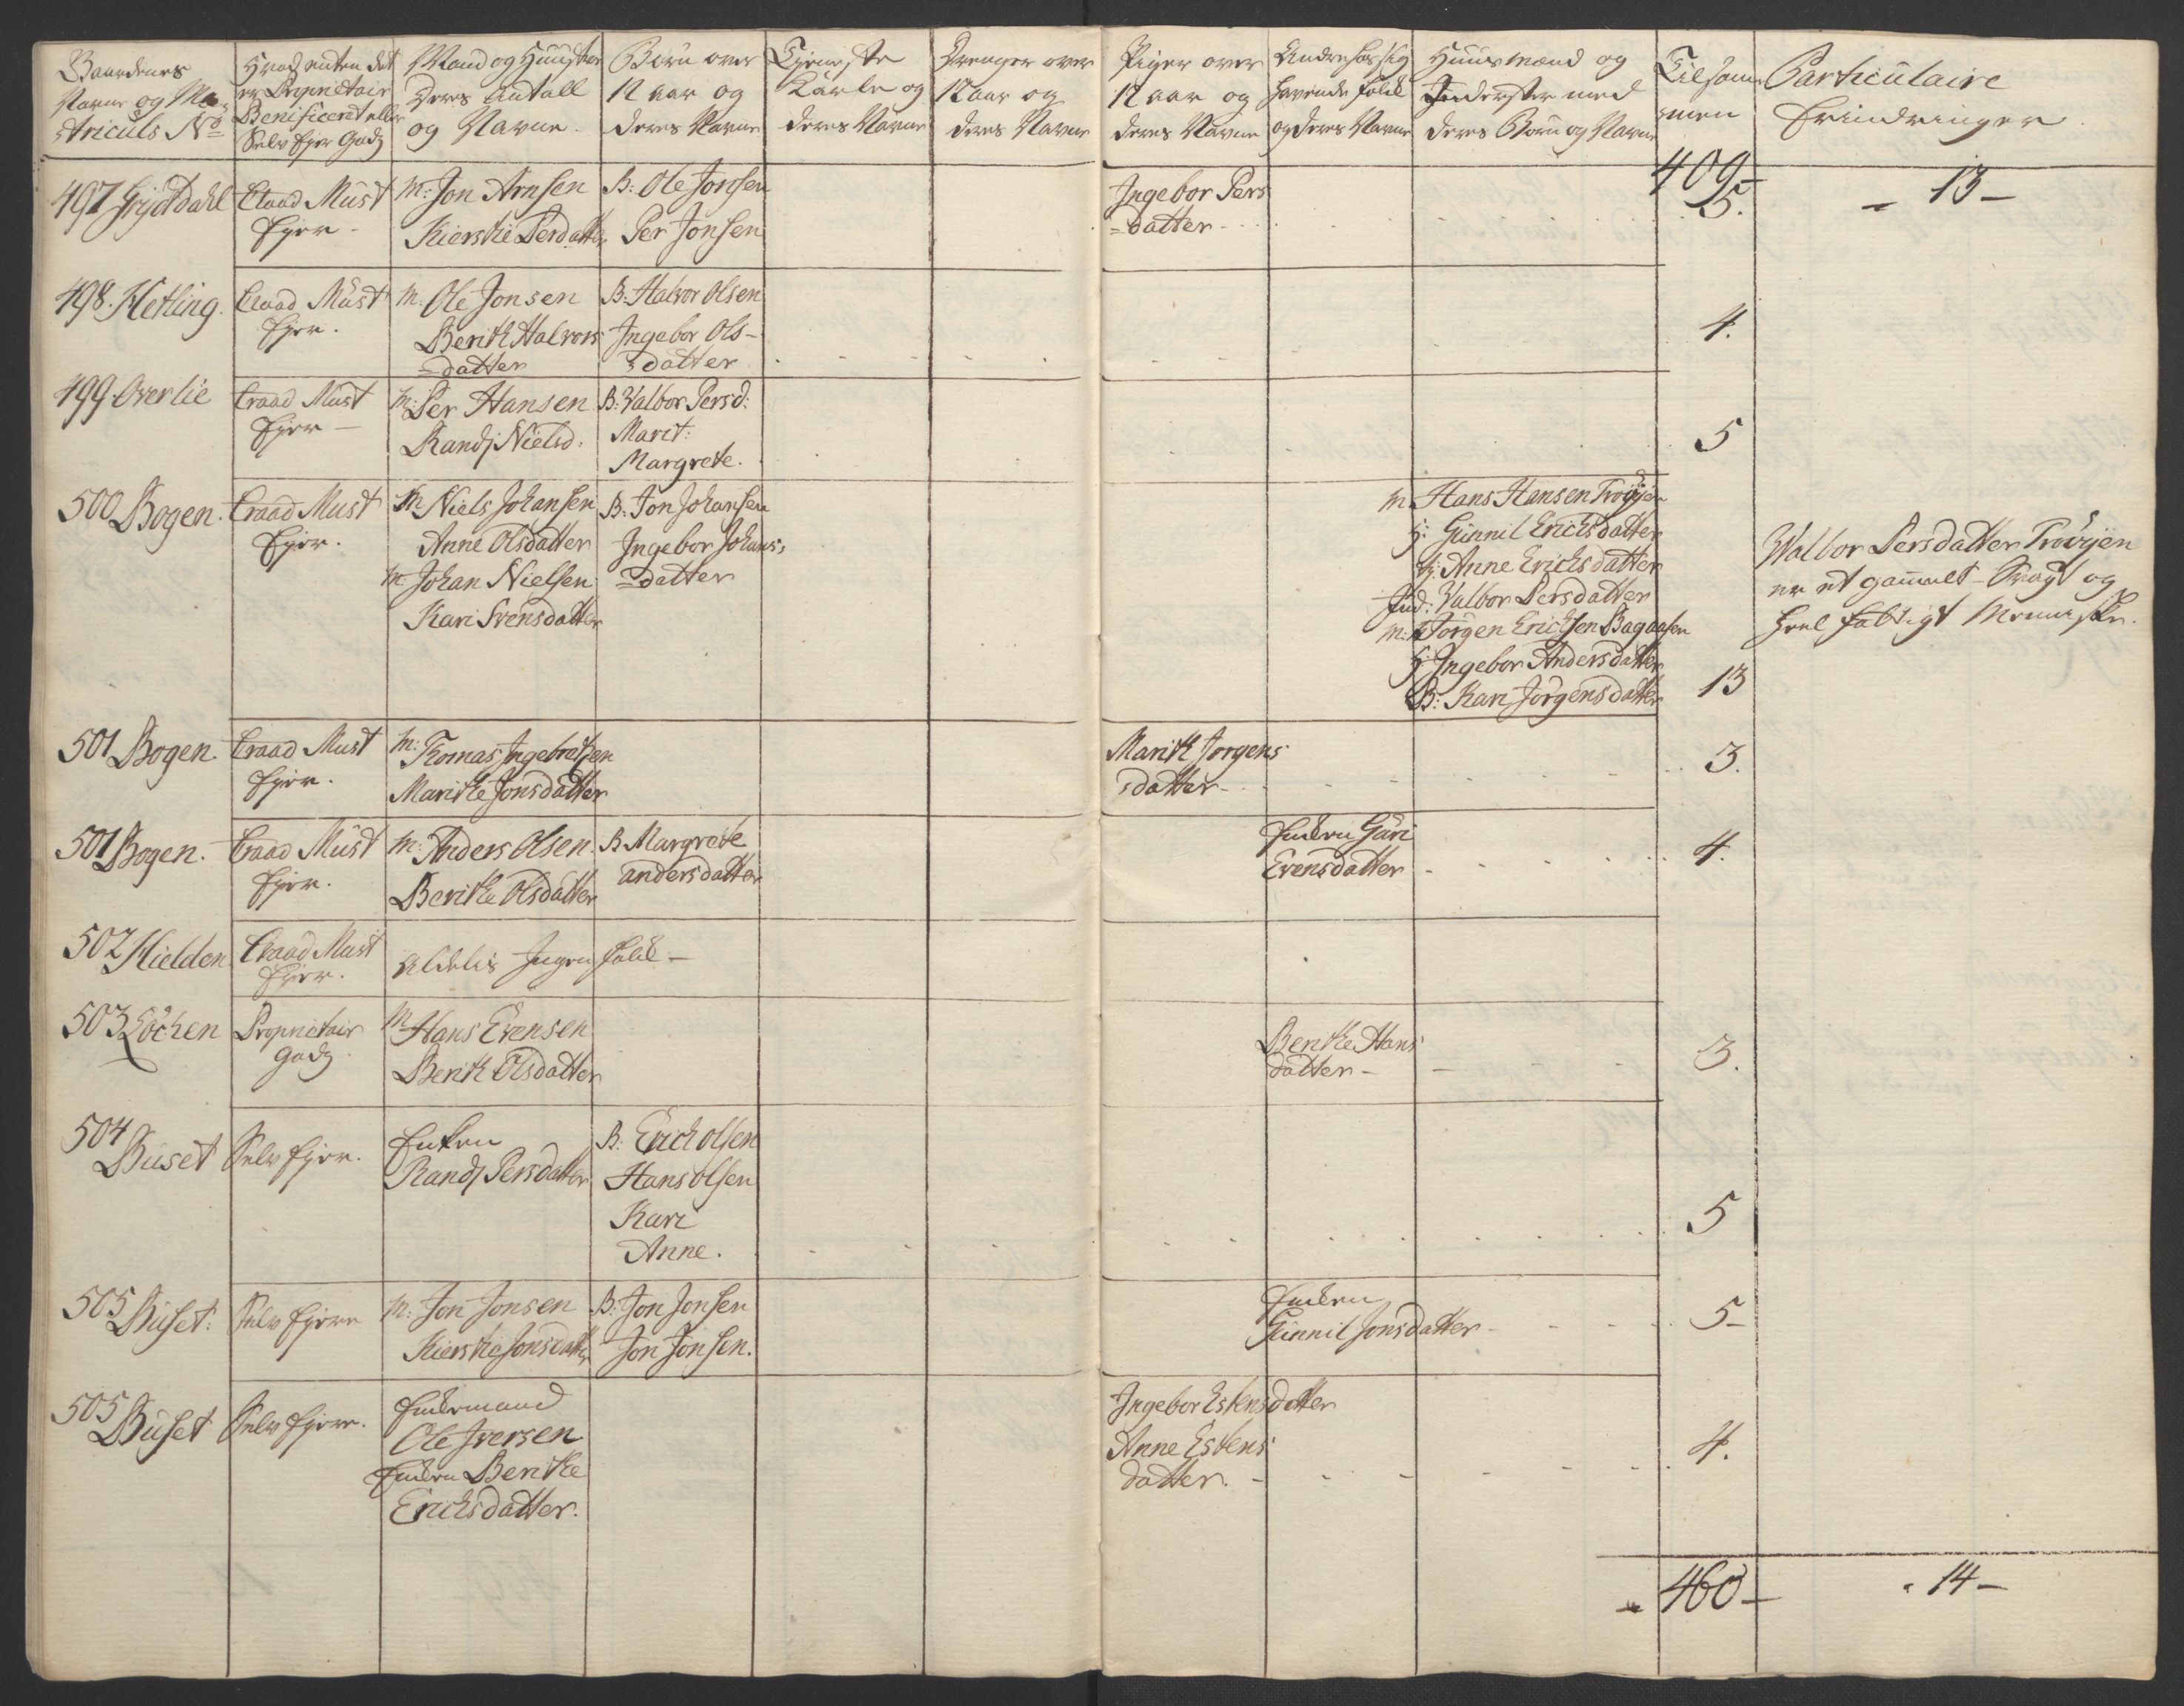 Gaardenes
Navne og Ma-
triculs No
Hvad enten det
er Proprietair
Benificeret eller
Selv Ejer Godz
Mand og Hustroe
Deres Antall
og Navne.
Børn over
12 aar og
deres Navne
Tjeneste
Karle og
deres Navne
Drenger over
12 aar og
deres Navne
Piger over
12 aar og
deres Navne
Andre hos sig
havende folk
og deres Navne
Huusmænd og
Inderster med
deres Børn og Navne
Tilsam-
men
Particulaire
Erindringer
409-
- 13-
497 Grytdahl
Etaad Must
Ejer-
M: Jon Arnsen
Kierstie Persdatter
B: Ole Jonsen
Per Jonsen
Ingebor Pers
=datter
5.
498. Ketling.
Craad Must
Ejer.
M: Ole Jonsen
Berith Halvors
=datter
B: Halvor Olsen
Ingebor Ols-
datter
4.
499. Overlie
Craad Must
Ejer-
M: Per Hansen
Randj Nielsd.
B: Valbor Persd:
Marit:
Margrete.
5
500 Bogen.
Craad Must
Ejer.
M Niels Johansen
Anne Olsdatter
M: Johan Nielsen
Kari Svensdatter
B: Jon Johansen
Ingebor Johans,
=datter
M. Hans Hansen Trøyjen
H: Gunnil Erichsdatter
Anne Erichsdatter
Ind: Valbor Persdatter
M: Jörgen Erichsen Bagaasen
H: Ingebor Andersdatter
B: Kari Jörgensdatter
13
Walbor Persdatter Trøyen
er et gammelt- Svagt og
heel fattigt Menniske.
501 Bogen.
Craad Must
Ejer.
M: Thomas Ingebretsen
Marithe Jonsdatter
Marith Jorgens
datter-
3.
501 Bogen.
Craad Must
Ejer.
M: Anders Olsen.
Berithe Olsdatter
B Margrete
andersdatter
Enken Guri
Evensdatter
4.
502 Kielden
Craad Must
Ejer.
Aldeles Ingen folk-
503 Löchen
Proprietair
Godz
M Hans Evensen
Berith Olsdatter
Berithe Hans
datter-
3.
504
Buset
Selv Ejer.
Enken
Randj Persdatter
B: Erich Olsen
Hans Olsen
Kari
Anne.
5
505 Buset:
Selv Ejere
M: Jon Jonsen
Kierstie Jonsdatter
B: Jon Jonsen
Jon Jonsen.
Enken
Gunnil Jonsdatter-
5-
505
Buset
Selv Ejere.
Enkemand
Ole Iversen
Enken Berithe
Erichsdatter.
Ingebor Estensdatter
Anne Estens
datter.-
4.
460-
. 14-